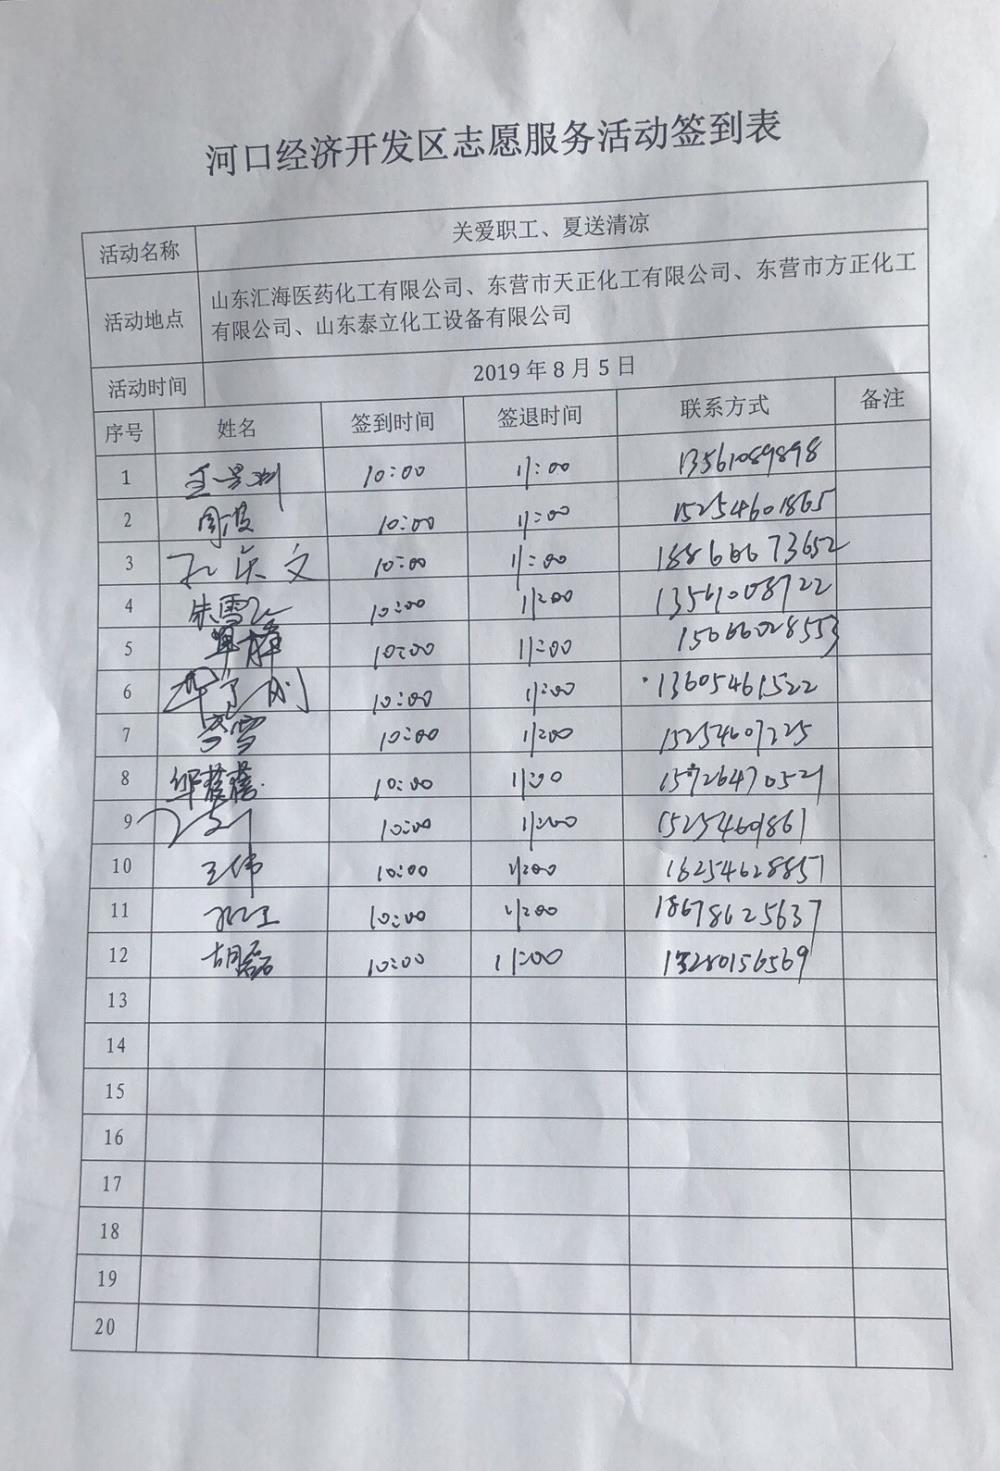 河口经济开发区志愿服务活动签到表
活动名称 关爱职工、夏送清凉
活动地点 山东汇海医药化工有限公司、东营市天正化工有限公司、东营市方正化工
有限公司、山东泰立化工设备有限公司
活动时间 2019年8月5日
序号 姓名 签到时间 签退时间 联系方式 备注
1 10:00 11:00 13561089898
2 周波 10:00 11:00 15254601865
3 孔庆文 10:00 11:00 18866673652
4 朱雪 10:00 11:00 13561008722
5 单峰 10:00 11:00 15666028553
6 10:00 11:00 13605461522
7 李雪 10:00 11:00 15254607225
8 毕蓓蓓 10:00 11:00 15726470521
9 10:00 11:00 15254601861
10 王伟 10:00 11:00 16254628851
11 10:00 11:00 18678625637
12 胡磊 10:00 11:00 13280156569
13
14
15
16
17
18
19
20